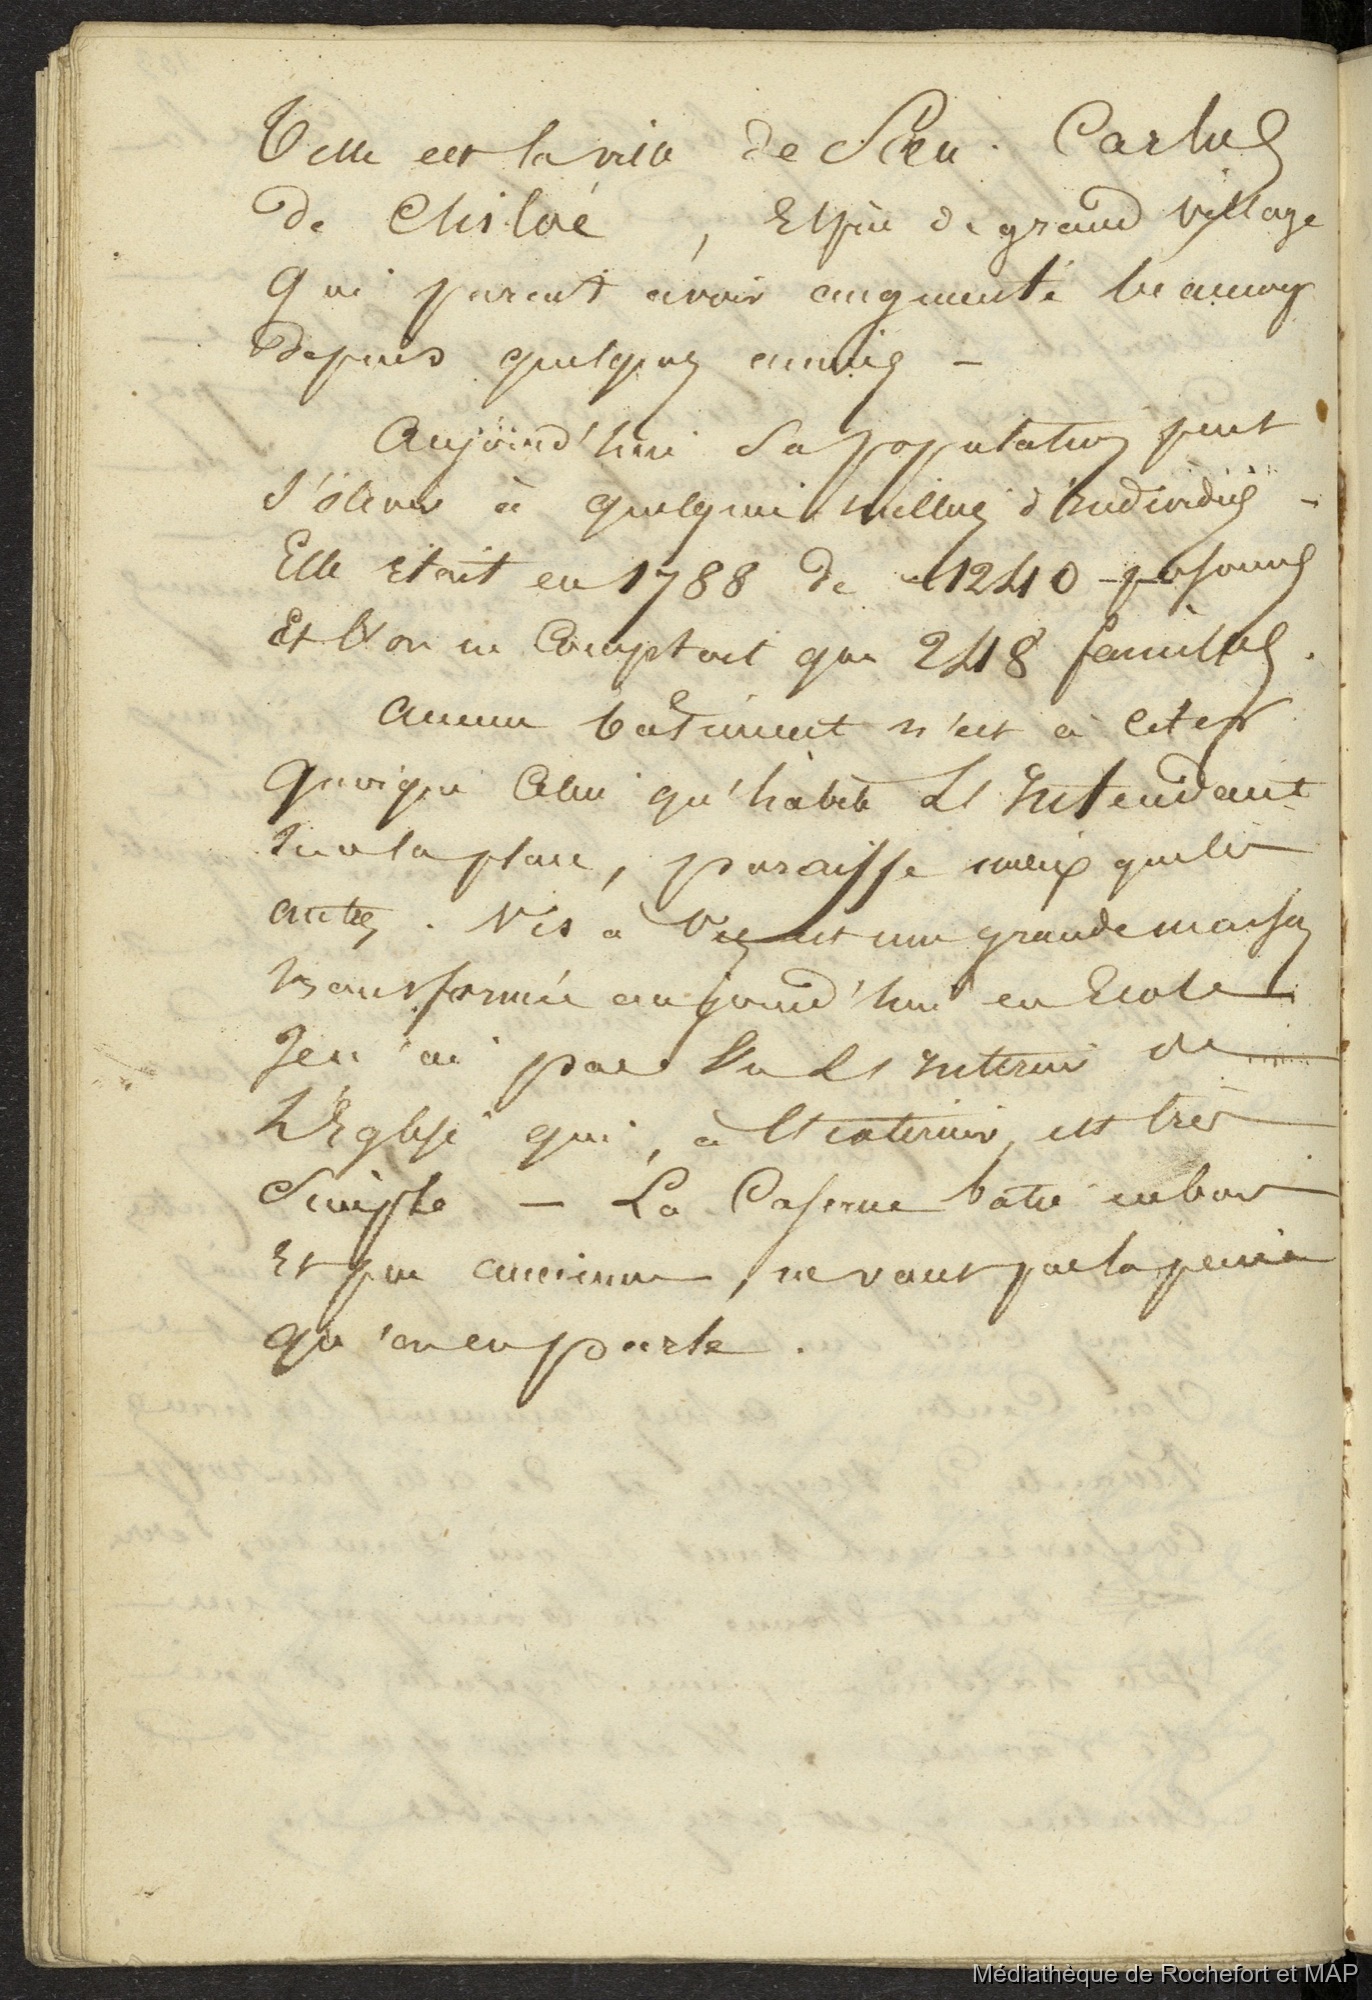 Telle est la ville de San. Carlos
de Chiloé, Espèce de grand village
qui parait avoir augmenté beaucoup
depuis quelques années —
Aujourd'hui sa population peut
s'élever à quelques milliers d'individus -
Elle était en 1788 de 1240 personnes
Et l'on en comptait que 248 familles.
Aucun bâtiment n'est à citer
quoique celui qu'habite L'Intendant
sur la place, paraisse mieux que les
autres. Vis à Vis est une grande maison
transformée aujourd'hui en Ecole
Je n'ai pas vu L'Interieur de
L'Eglise qui, à l'exterieur, est très
Simple — La Caserne bâtie en bois
Et peu ancienne, ne vaut pas la peine
qu'on en parle.
Médiathèque de Rochefort et MAP